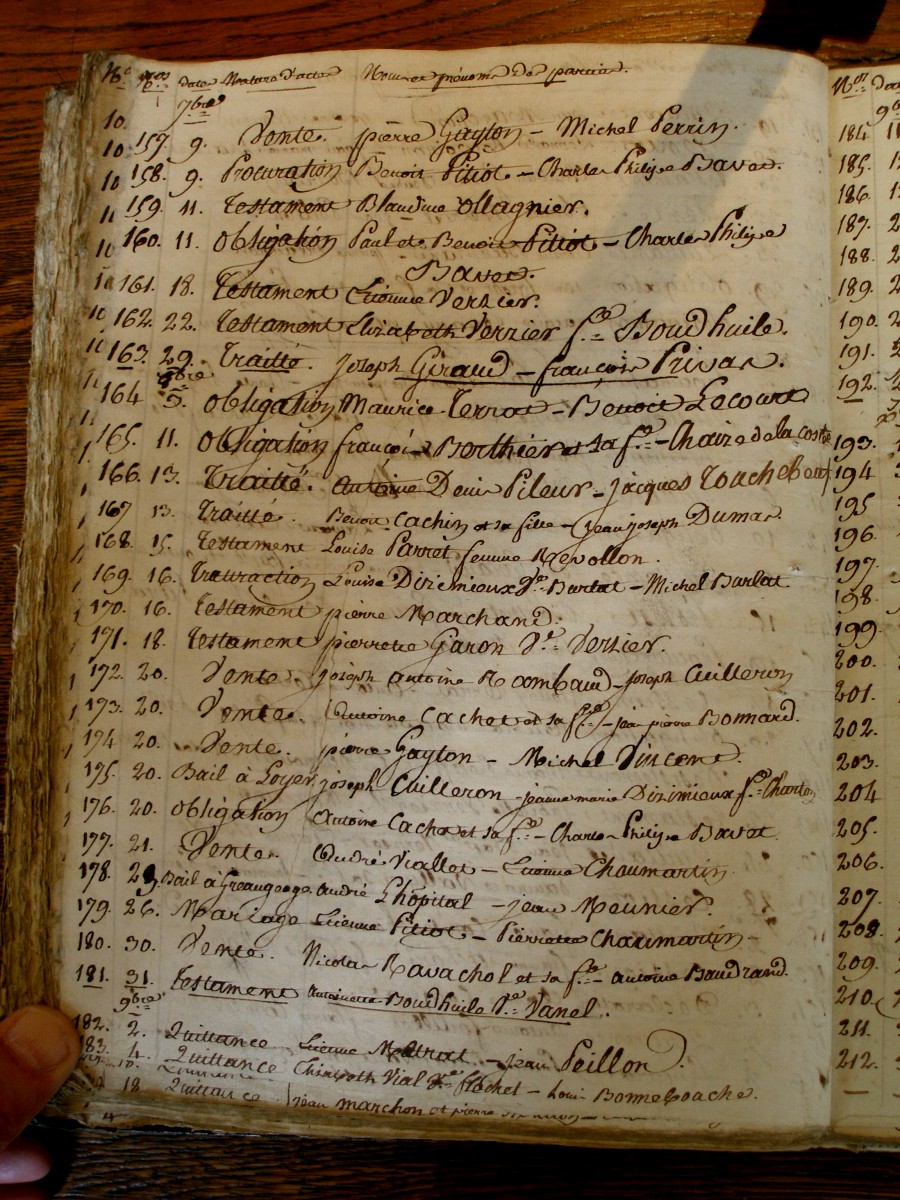 Nos date Nature d'actes Noms et prénoms des parties.
7bres
157 9. Vente. pierre Gayton – Michel Perrin.
158. 9. Procuration Benoit Pitiot – Charles Philipe Bavet.
159. 11. Testament Blandine Ollagnier.
160. 11. Obligation Paul et Benoit Pitiot – Charles Philipe
Bavet.
161. 18. Testament Etienne Verzier.
162. 22. Testament Elizabeth Verzier fe Boudhuile.
163. 29. Traitté. joseph Giraud – françois Privas.
8bre
164 5. Obligation Maurice Terrat – Benoit Lecourt
165. 11. Obligation françois Berthier et sa fe – Chaize de la coste
166. 13. Traitté. Antoine Denis Pileur – jacques
167 13. Traitté. Benoit Cachin et sa fille – jean joseph Dumas.
168. 15. Testament Louise Parret femme Revollon.
169. 16. Transaction Louise Dizimieux Ve Barlat – Michel Barlat
170. 16. Testament pierre Marchand.
171. 18. Testament pierrette Garon Ve Verzier.
172. 20. Vente. joseph antoine Roombaud – joseph Cuilleron
173. 20. Vente. Antoine Cachet et sa fe – jean pierre Bonnard.
174 20. Vente. pierre Gayton – Michel Vincent.
175. 20. Bail à Loyer joseph Cuilleron – jeanne marie Dizimieux fe Charton
176. 20. Obligation Antoine Cachet et sa fe – Charles Philipe Bavet
177. 21. Vente. André Viallet – Etienne Chaumartin
178. 23. Bail à Greangeage. André Lhôpital – jean Meunier.
179. 26. Mariage Etienne Pitiot – Pierrette Chaumartin
180. 30. Vente. Nicolas Ravachol et sa fe – antoine Baudrand.
181. 31. Testament Antoinette Boudhuile Ve Vanel.
9bre
182. 2. Quittance Etienne – jean Peillon.
183. 4. Quittance Elizabeth Vial Ve – Louis Bonnetoache.
18 Quittance jean marchon et pierre
Nos
184 11
185.
186.
187. 2
188.
189. 2
190. 2
191.
192.
193.
194
195
196.
197.
198.
199.
200.
201.
202.
203.
204
205.
206.
207.
208.
209.
210.
211.
212.